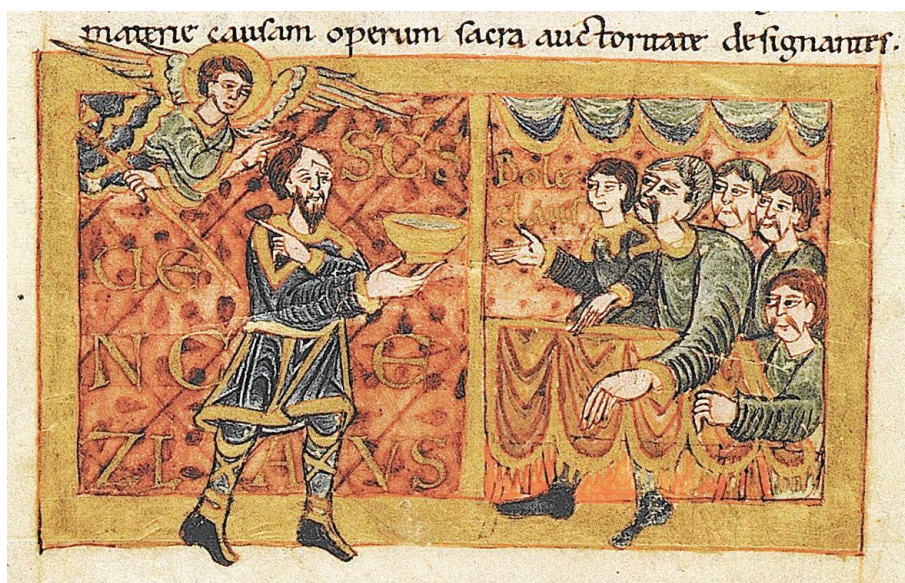 materie causam operum sacra auctoritate designantes.
SCS
VE
NC E
ZLAVS
Bole
zlauus